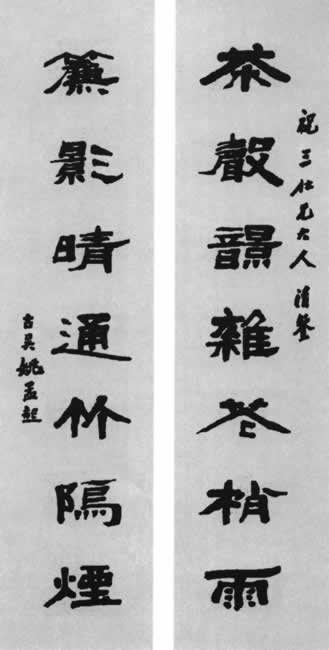 茶聲韻雜花梢雨
祝三仁兄大人清鑒
簾影晴通竹隔煙
古吳姚孟起